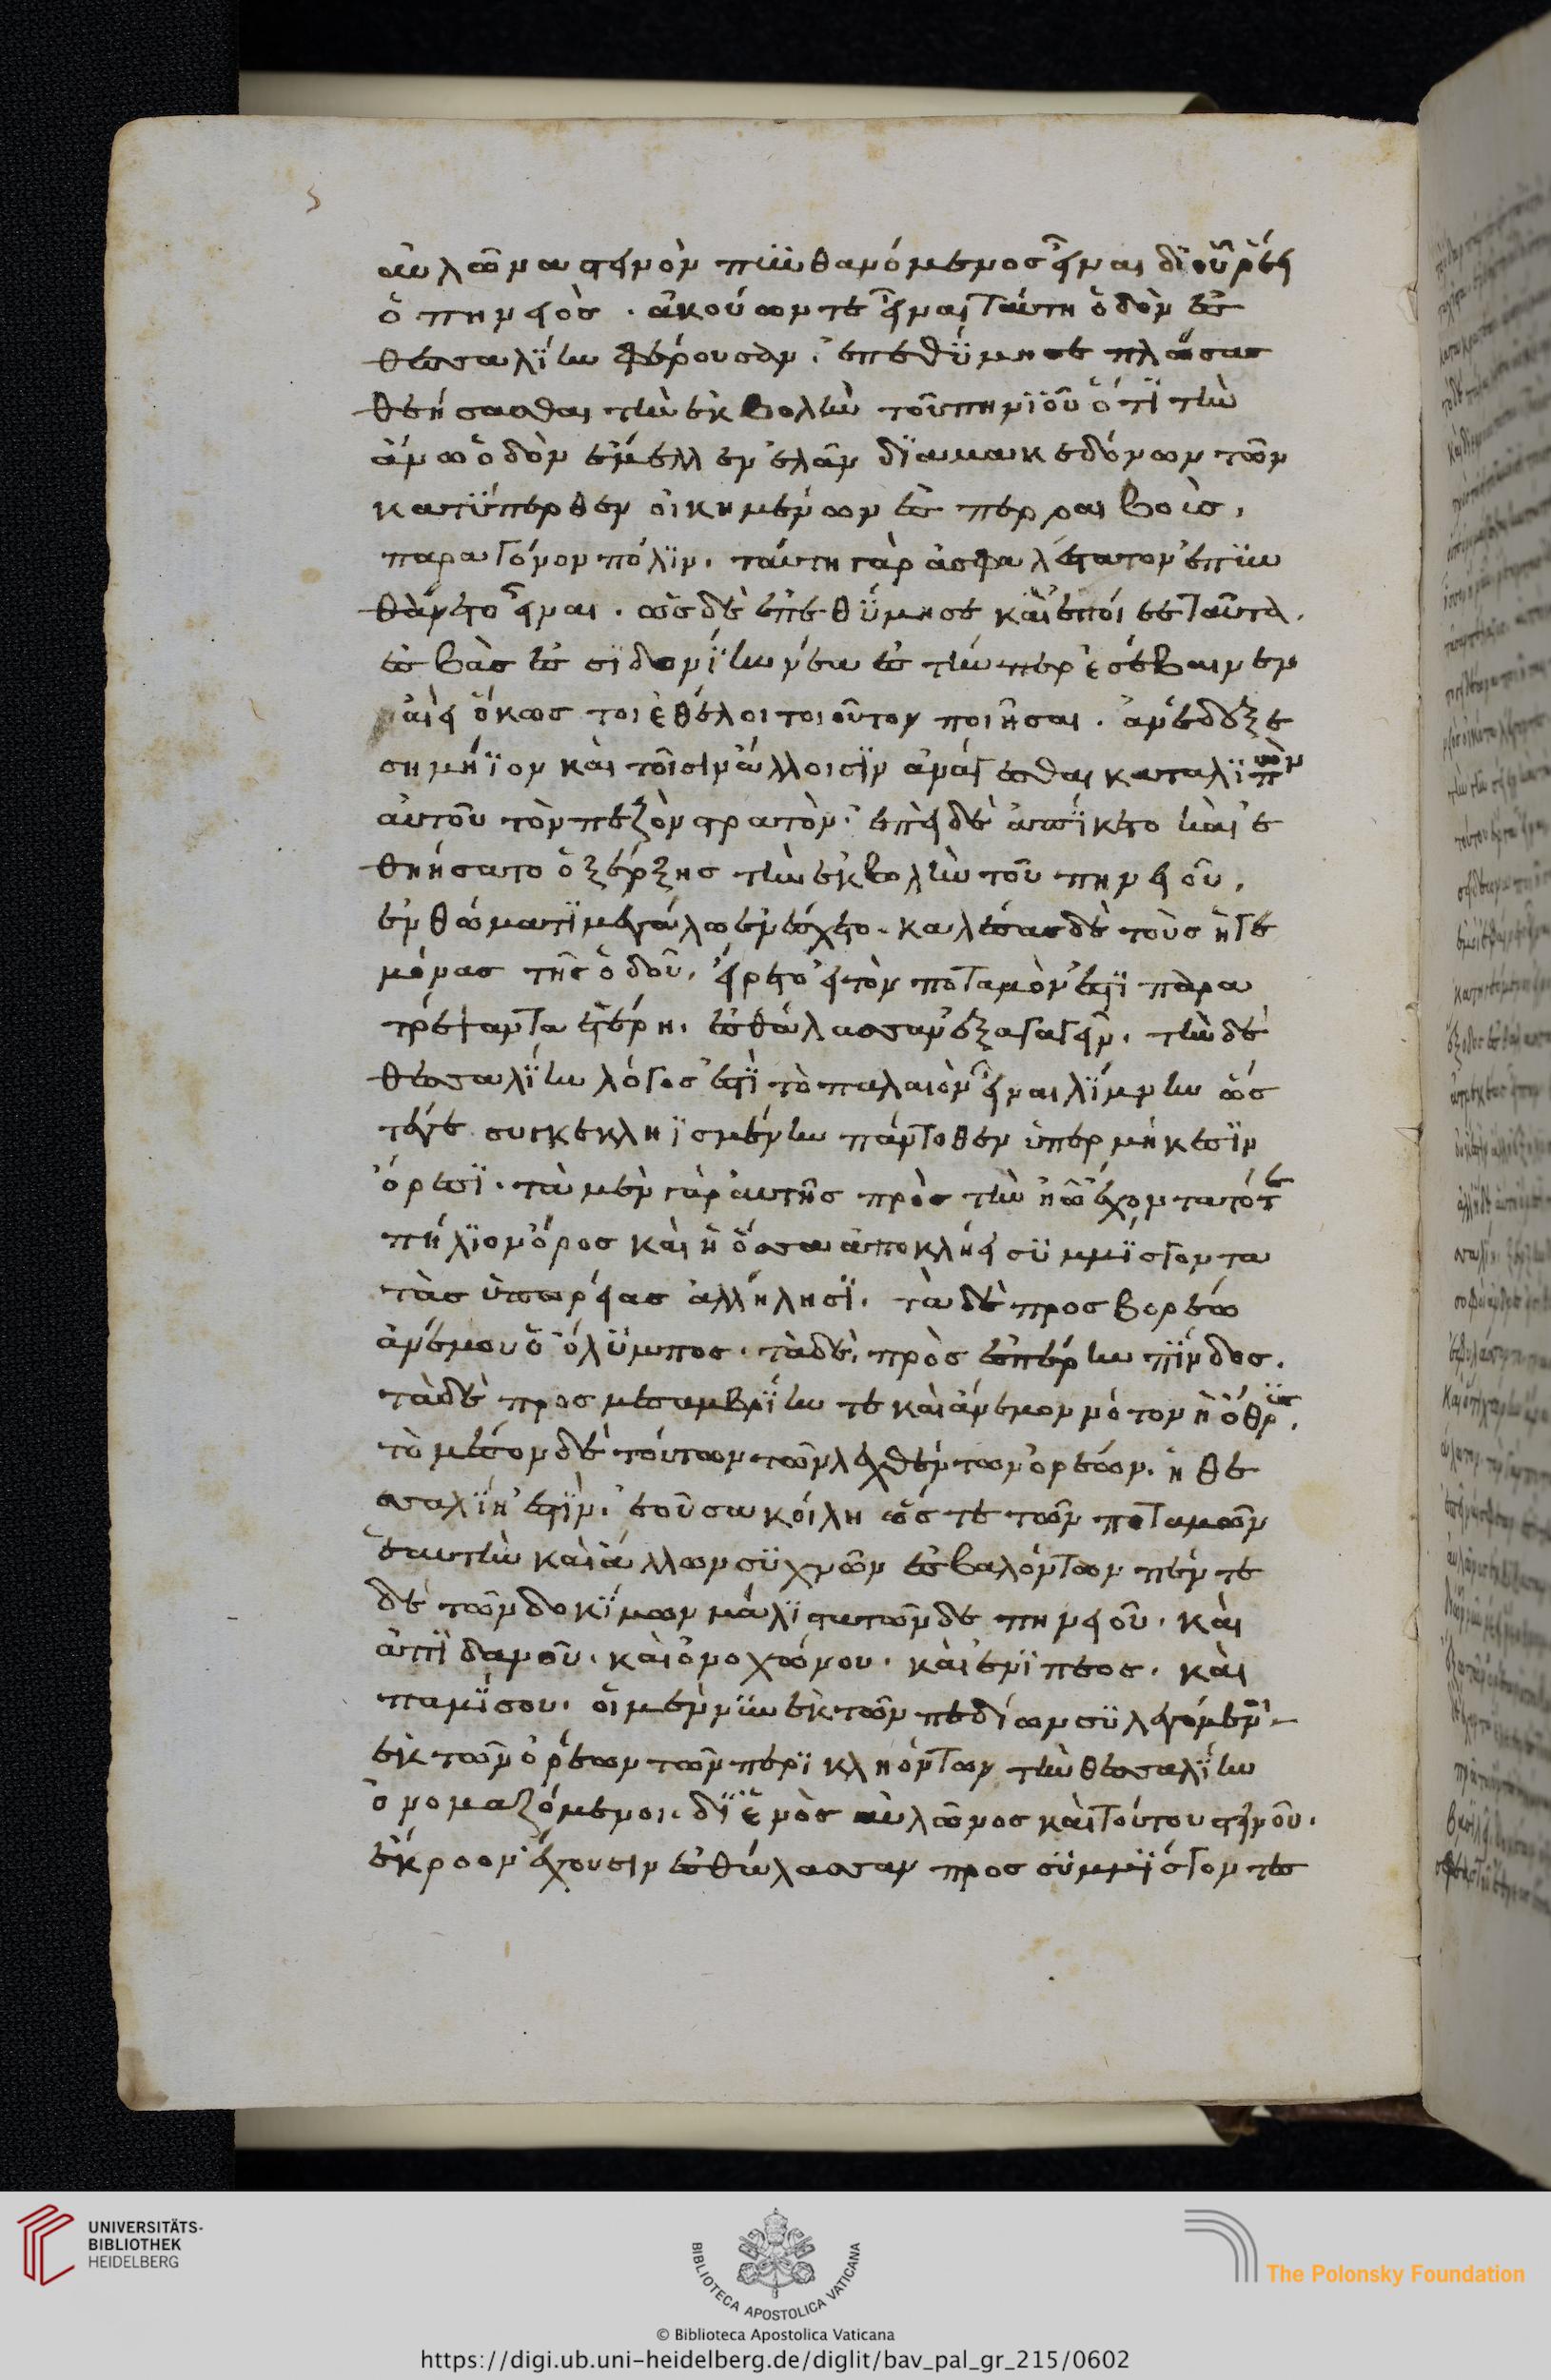 αὐλῶνα στεινὸν πυνθανόμενος εἶναι δι οὗ ῥέει
ὁ πηνειὸς. ἀκούων τε εἶναι ταύτη ὁδὸν ἐς
θεσσαλίην φέρουσαν. ἐπεθύμησε πλώσας
θεήσασθαι τὴν ἐκβολὴν τοῦ πηνιοῦ ὅτι τὴν
ἄνω ὁδὸν ἔμελλεν ἐλᾶν διὰ μακεδόνων τῶν
κατύπερθεν οἰκημένων ἐς περραιβοὺς.
παρα γόνον πόλιν. ταύτη γὰρ ἀσφαλέστατον ἐπυν
θάνετο εἶναι. ὡς δὲ ἐπεθύμησε καὶ ἐποίεε ταῦτα.
ἐσβὰς ἐς σιδονίην νέα ἐς τήνπερ ἐσέβαινεν
αἰεὶ ὅκως τοι ἐθέλοι τοιοῦτον ποιῆσαι. ἀνέδεξε
σημήϊον καὶ τοῖσιν ἄλλοισιν ἀνάγεσθαι καταλιπὼν
αὐτοῦ τὸν πεζὸν στρατὸν. ἐπεὶ δὲ ἀπίκετο καὶ ἐ
θηήσατο ὁ ξέρξης τὴν ἐκβολὴν τοῦ πηνειοῦ.
ἐν θώματι μεγάλω ἐνέσχετο. καλέσας δὲ τοὺς ἡγε
μόνας τῆς ὁδοῦ. εἴρετο εἰ τὸν ποταμὸν ἐστὶ παρα
τρέψαντα ἑτέρη. ἐς θάλασσαν ἐξαγαγεῖν. τὴν δὲ
θεσσαλίην λόγος ἐστὶ τὸ παλαιὸν εἶναι λίμνην ὥς
τέγε συγκεκληισμένην πάντοθεν ὑπερμήκεσιν
ὄρεσι. τὰ μὲν γὰρ αὐτῆς πρὸς τὴν ἠῶ ἔχοντα τότε
πήλιον ὄρος καὶ ἡ ὄσσα ἀποκλήει συμμίσγοντα
τὰς ὑπωρείας ἀλλήλησι. τὰ δὲ προς βορέω
ἀνέμου ὁ ὄλυμπος. τὰ δὲ πρὸς ἑσπέρην πίνδος.
τὰ δὲ προς μεσαμβρίην τε καὶ ἄνεμον νότον ἡ ὄθρυς.
τὸ μέσον δὲ τούτων τῶν λεχθέντων ὀρέων. ἡ θε
σσαλίη ἐστὶν. ἐοῦσα κοίλη ὥστε τῶν ποταμῶν
ἐς αὐτὴν καὶ ἄλλων συχνῶν ἐσβαλόντων πέντε
δὲ τῶν δοκίμων μάλιστα τῶνδε πηνειοῦ. καὶ
ἀπιδανοῦ. καὶ ὀνοχώνου. καὶ ἐνιπέος. καὶ
παμίσου. οἱ μὲν νῦν ἐκ τῶν πεδίων συλεγόμενοι
ἐκ τῶν ὀρέων τῶν περικληόντων τὴν θεσσαλίην
ὀνομαζόμενοι. δι ἑνὸς αὐλῶνος καὶ τούτου στεινοῦ.
ἔκροον ἔχουσιν ἐς θάλασσαν προσσυμμίσγοντες
UNIVERSITÄTS-
BIBLIOTHEK
HEIDELBERG
BIBLIOTECA APOSTOLICA VATICANA
The Polonsky Foundation
© Biblioteca Apostolica Vaticana
https://digi.ub.uni-heidelberg.de/diglit/bav_pal_gr_215/0602